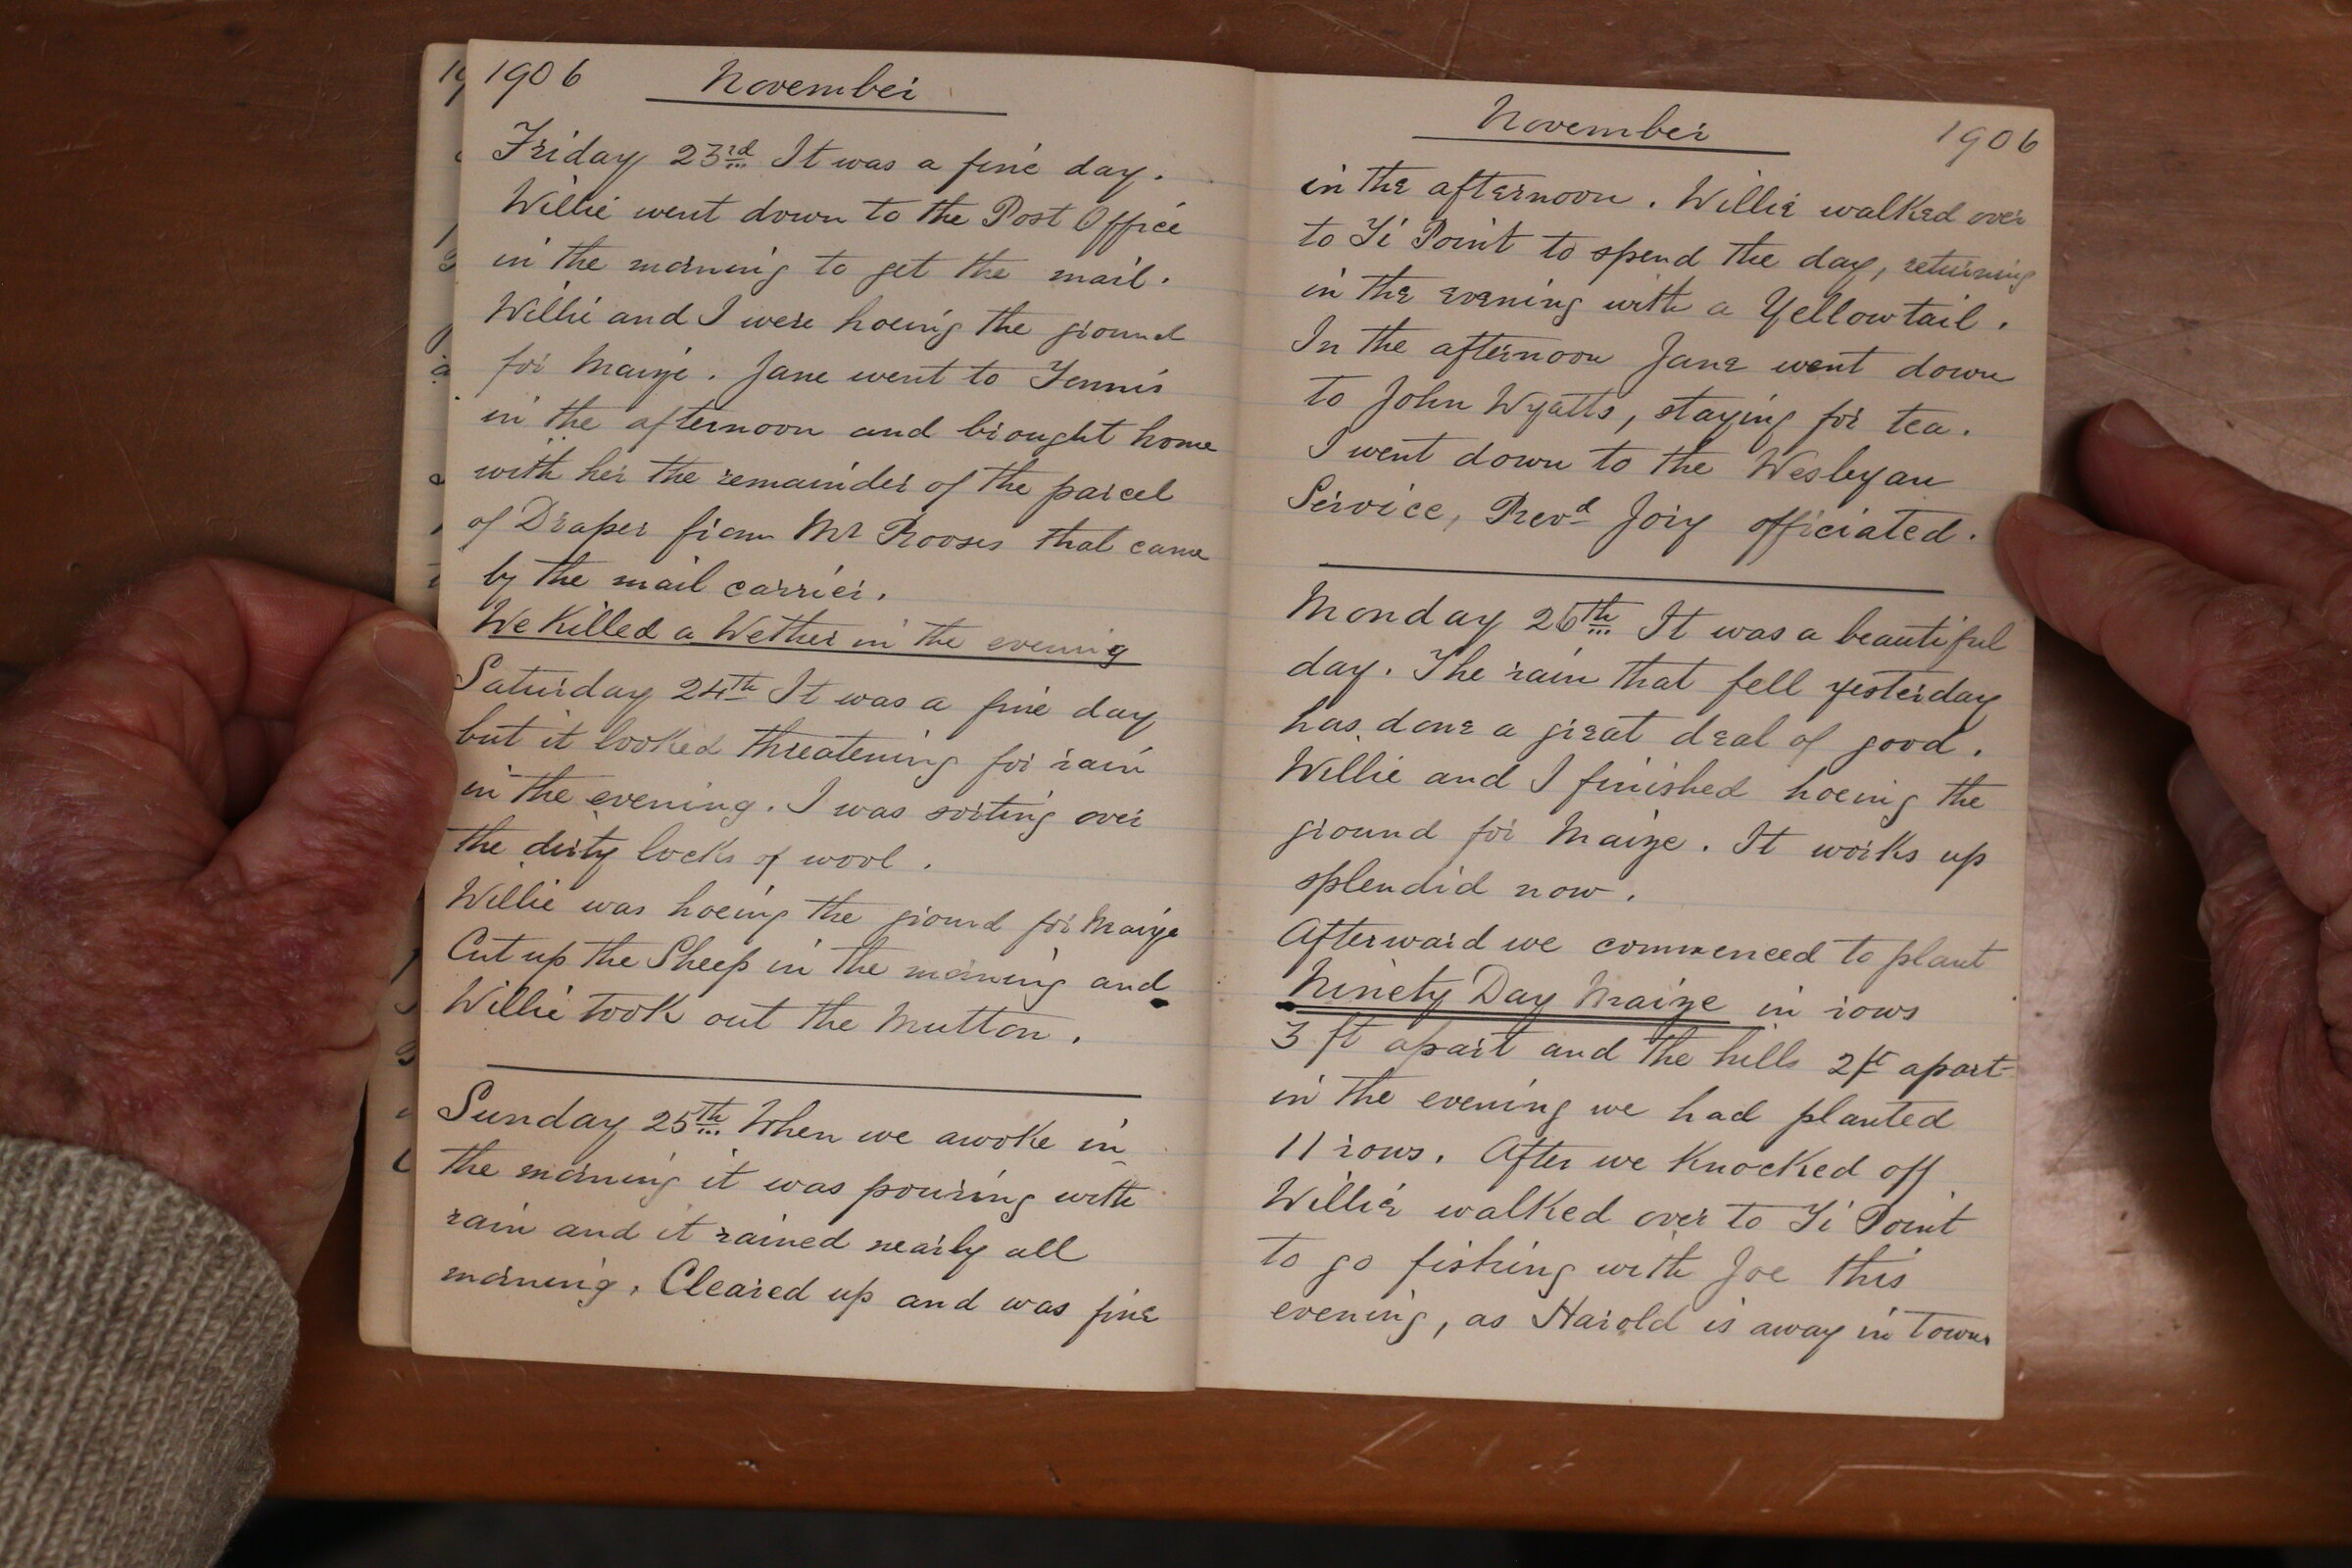 1906 November
Friday 23rd It was a fine day.
Willie went down to the Post Office
in the morning to get the mail.
Willie and I were hoeing the ground
for Maize. Jane went to Tennis
in the afternoon and brought home
with her the remainder of the parcel
of Draper from Mr Rooses that came
by the mail carrier.
We Killed a Wether in the evening
Saturday 24th It was a fine day
but it looked threatening for rain
in the evening. I was sorting over
the dirty locks of wool.
Willie was hoeing the ground for Maize
Cut up the Sheep in the morning and
Willie took out the Mutton.
Sunday 25th When we awoke in
the morning it was pouring with
rain and it rained nearly all
morning. Cleared up and was fine
November 1906
in the afternoon. Willie walked over
to Ti Point to spend the day, returning
in the evening with a Yellowtail.
In the afternoon Jane went down
to John Wyatts, staying for tea.
I went down to the Wesleyan
Service, Revd Jory officiated.
Monday 26th It was a beautiful
day. The rain that fell yesterday
has done a great deal of good.
Willie and I finished hoeing the
ground for Maize. It works up
splendid now.
Afterward we commenced to plant
Ninety Day Maize in rows
3 ft apart and the hills 2ft apart
in the evening we had planted
11 rows. After we Knocked off
Willie walked over to Ti Point
to go fishing with Joe this
evening, as Harold is away in Town